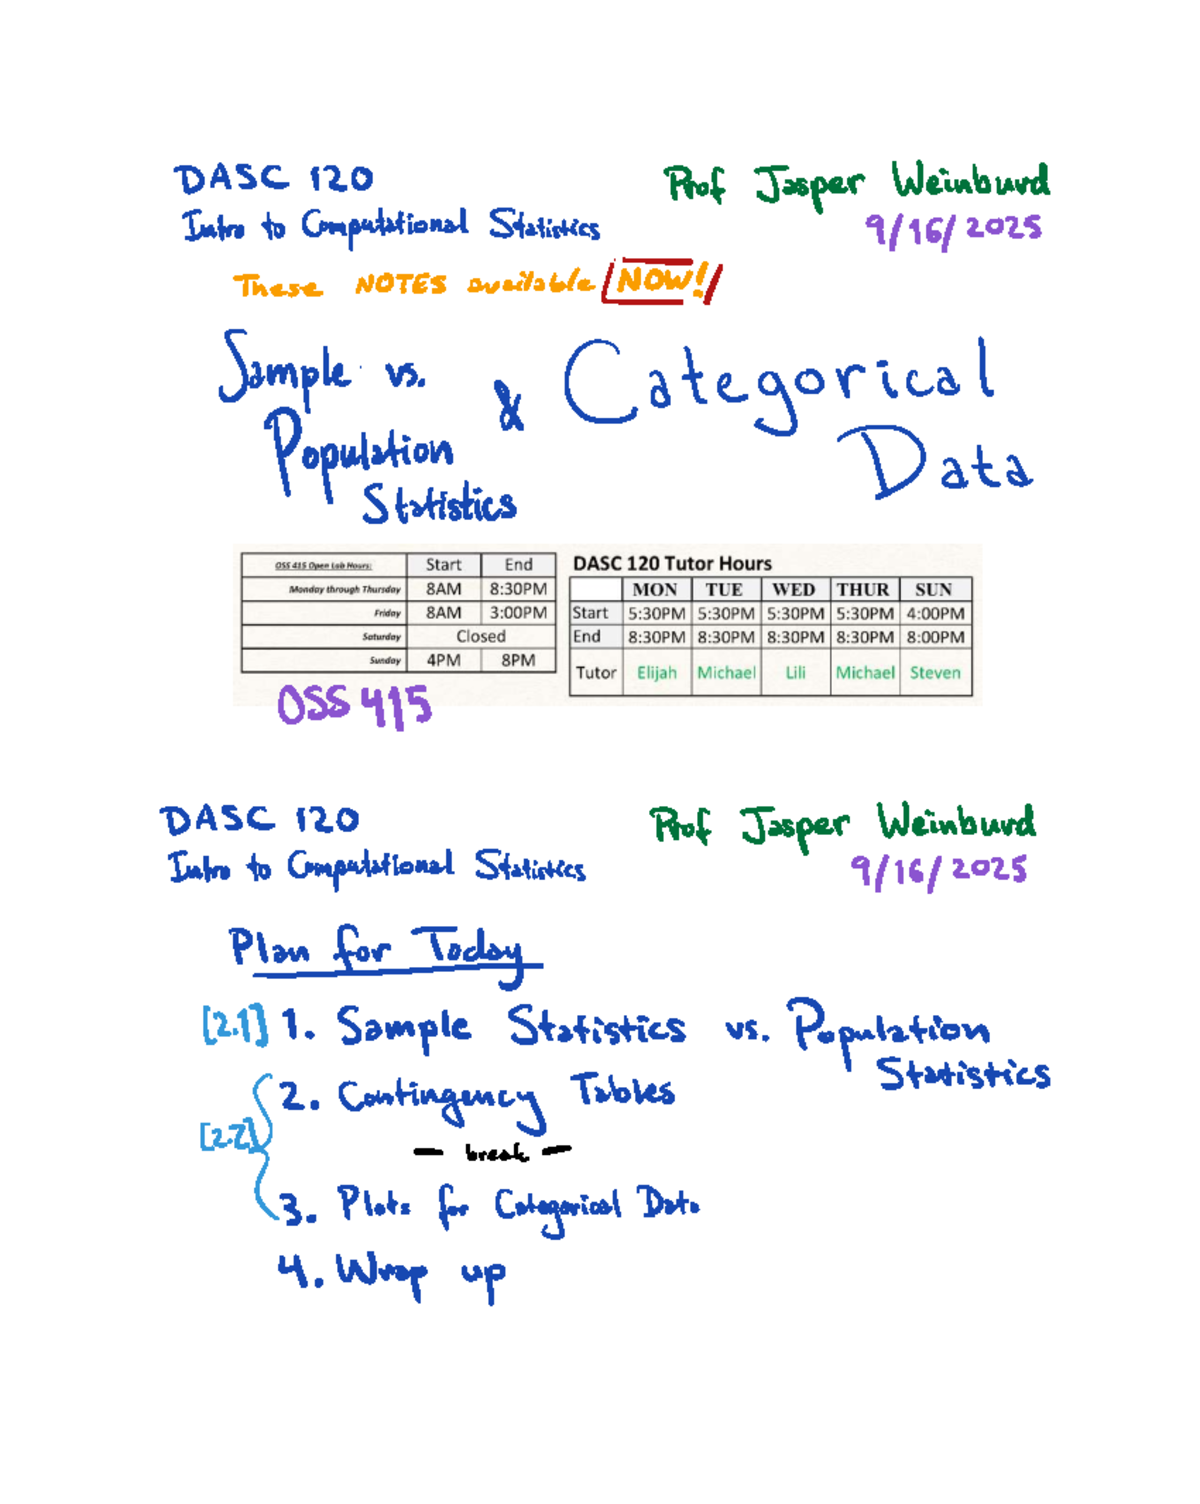 DASC 120
Prof Jasper Weinburd
Intro to Computational Statistics
9/16/2025
These NOTES available NOW!
Sample vs.
Population
Statistics
& Categorical
Data
OSS 415 Open Lab Hours: Start End
Monday through Thursday 8AM 8:30PM
Friday 8AM 3:00PM
Saturday Closed
Sunday 4PM 8PM
OSS 415
DASC 120 Tutor Hours
MON TUE WED THUR SUN
Start 5:30PM 5:30PM 5:30PM 5:30PM 4:00PM
End 8:30PM 8:30PM 8:30PM 8:30PM 8:00PM
Tutor Elijah Michael Lili Michael Steven
DASC 120
Prof Jasper Weinburd
Intro to Computational Statistics
9/16/2025
Plan for Today
[2.1] 1. Sample Statistics vs. Population
Statistics
2. Contingency Tables
[2.2]
— break —
3. Plots for Categorical Data
4. Wrap up